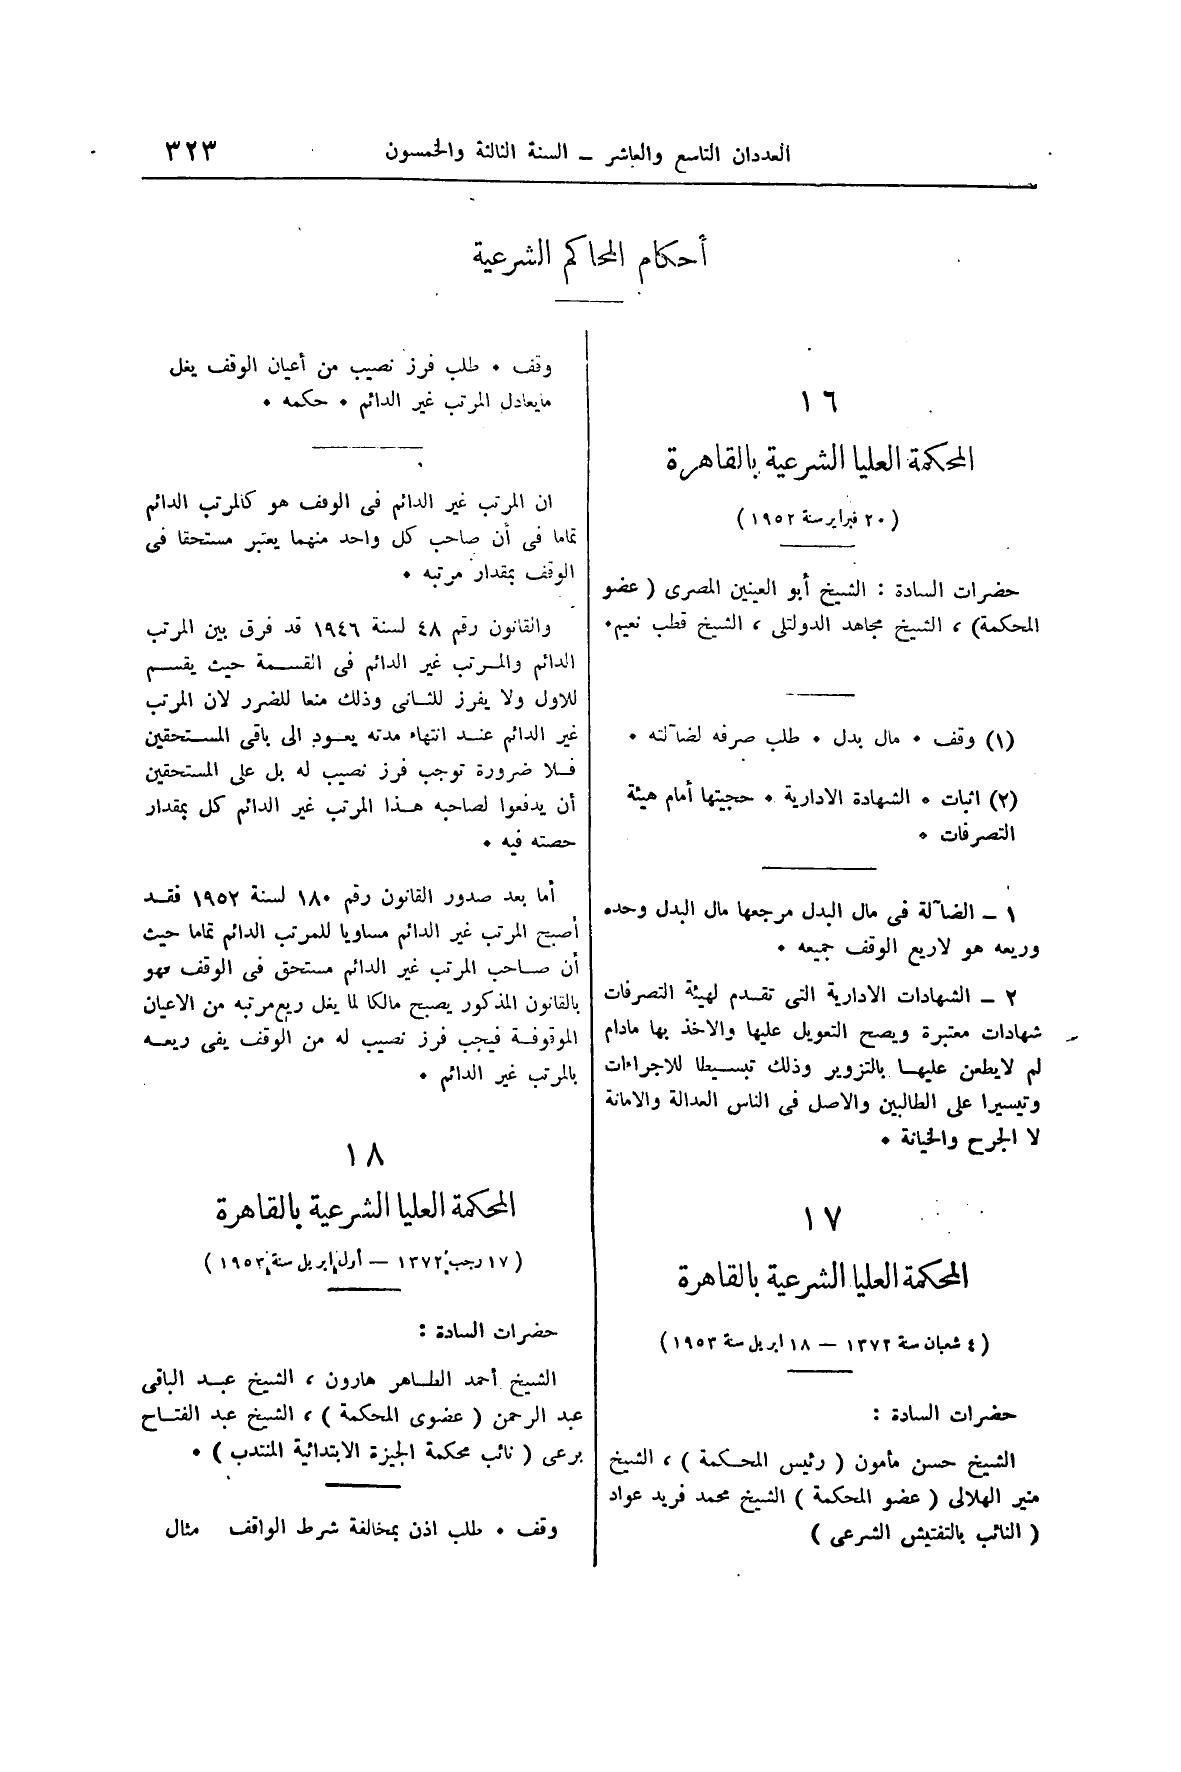 العددان التاسع والعاشر – السنة الثالثة والخمسون ٣٢٣
أحكام المحاكم الشرعية
١٦
المحكمة العليا الشرعية بالقاهرة
(٢٠ فبراير سنة ١٩٥٢)
حضرات السادة : الشيخ أبو العينين المصرى ( عضو
المحكمة) ، الشيخ مجاهد الدولتلى ، الشيخ قطب نعيم٠
(١) وقف ٠ مال بدل ٠ طلب صرفه لضآلته ٠
(٢) اثبات ٠ الشهادة الادارية ٠ حجيتها أمام هيئة
التصرفات ٠
١ – الضآلة فى مال البدل مرجعها مال البدل وحده
وريعه هو لاريع الوقف جميعه ٠
٢ – الشهادات الادارية التى تقدم لهيئة التصرفات
شهادات معتبرة ويصح التعويل عليها والاخذ بها مادام
لم لايطعن عليها بالتزوير وذلك تبسيطا للاجراءات
وتيسيرا على الطالبين والاصل فى الناس العدالة والامانة
لا الجرح والخيانة ٠
١٧
المحكمة العليا الشرعية بالقاهرة
(٤ شعبان سنة ١٣٧٢ – ١٨ ابريل سنة ١٩٥٣)
حضرات السادة :
الشيخ حسن مأمون ( رئيس المحكمة ) ، الشيخ
منير الهلالى ( عضو المحكمة ) الشيخ محمد فريد عواد
( النائب بالتفتيش الشرعى )
وقف ٠ طلب فرز نصيب من أعيان الوقف يغل
مايعادل المرتب غير الدائم ٠ حكمه ٠
ان المرتب غير الدائم فى الوقف هو كالمرتب الدائم
تماما فى أن صاحب كل واحد منهما يعتبر مستحقا فى
الوقف بمقدار مرتبه ٠
والقانون رقم ٤٨ لسنة ١٩٤٦ قد فرق بين المرتب
الدائم والمرتب غير الدائم فى القسمة حيث يقسم
للاول ولا يفرز للثانى وذلك منعا للضرر لان المرتب
غير الدائم عند انتهاء مدته يعود الى باقى المستحقين
فلا ضرورة توجب فرز نصيب له بل على المستحقين
أن يدفعوا لصاحبه هذا المرتب غير الدائم كل بمقدار
حصته فيه ٠
أما بعد صدور القانون رقم ١٨٠ لسنة ١٩٥٢ فقد
أصبح المرتب غير الدائم مساويا للمرتب الدائم تماما حيث
أن صاحب المرتب غير الدائم مستحق فى الوقف فهو
بالقانون المذكور يصبح مالكا لما يغل ريع مرتبه من الاعيان
الموقوفة فيجب فرز نصيب له من الوقف يفى ريعه
بالمرتب غير الدائم ٠
١٨
المحكمة العليا الشرعية بالقاهرة
(١٧ رجب ١٣٧٢ – أول ابريل سنة ١٩٥٣)
حضرات السادة :
الشيخ أحمد الطاهر هارون ، الشيخ عبد الباقى
عبد الرحمن ( عضوى المحكمة ) ، الشيخ عبد الفتاح
برعى ( نائب محكمة الجيزة الابتدائية المنتدب ) ٠
وقف ٠ طلب اذن بمخالفة شرط الواقف مثال